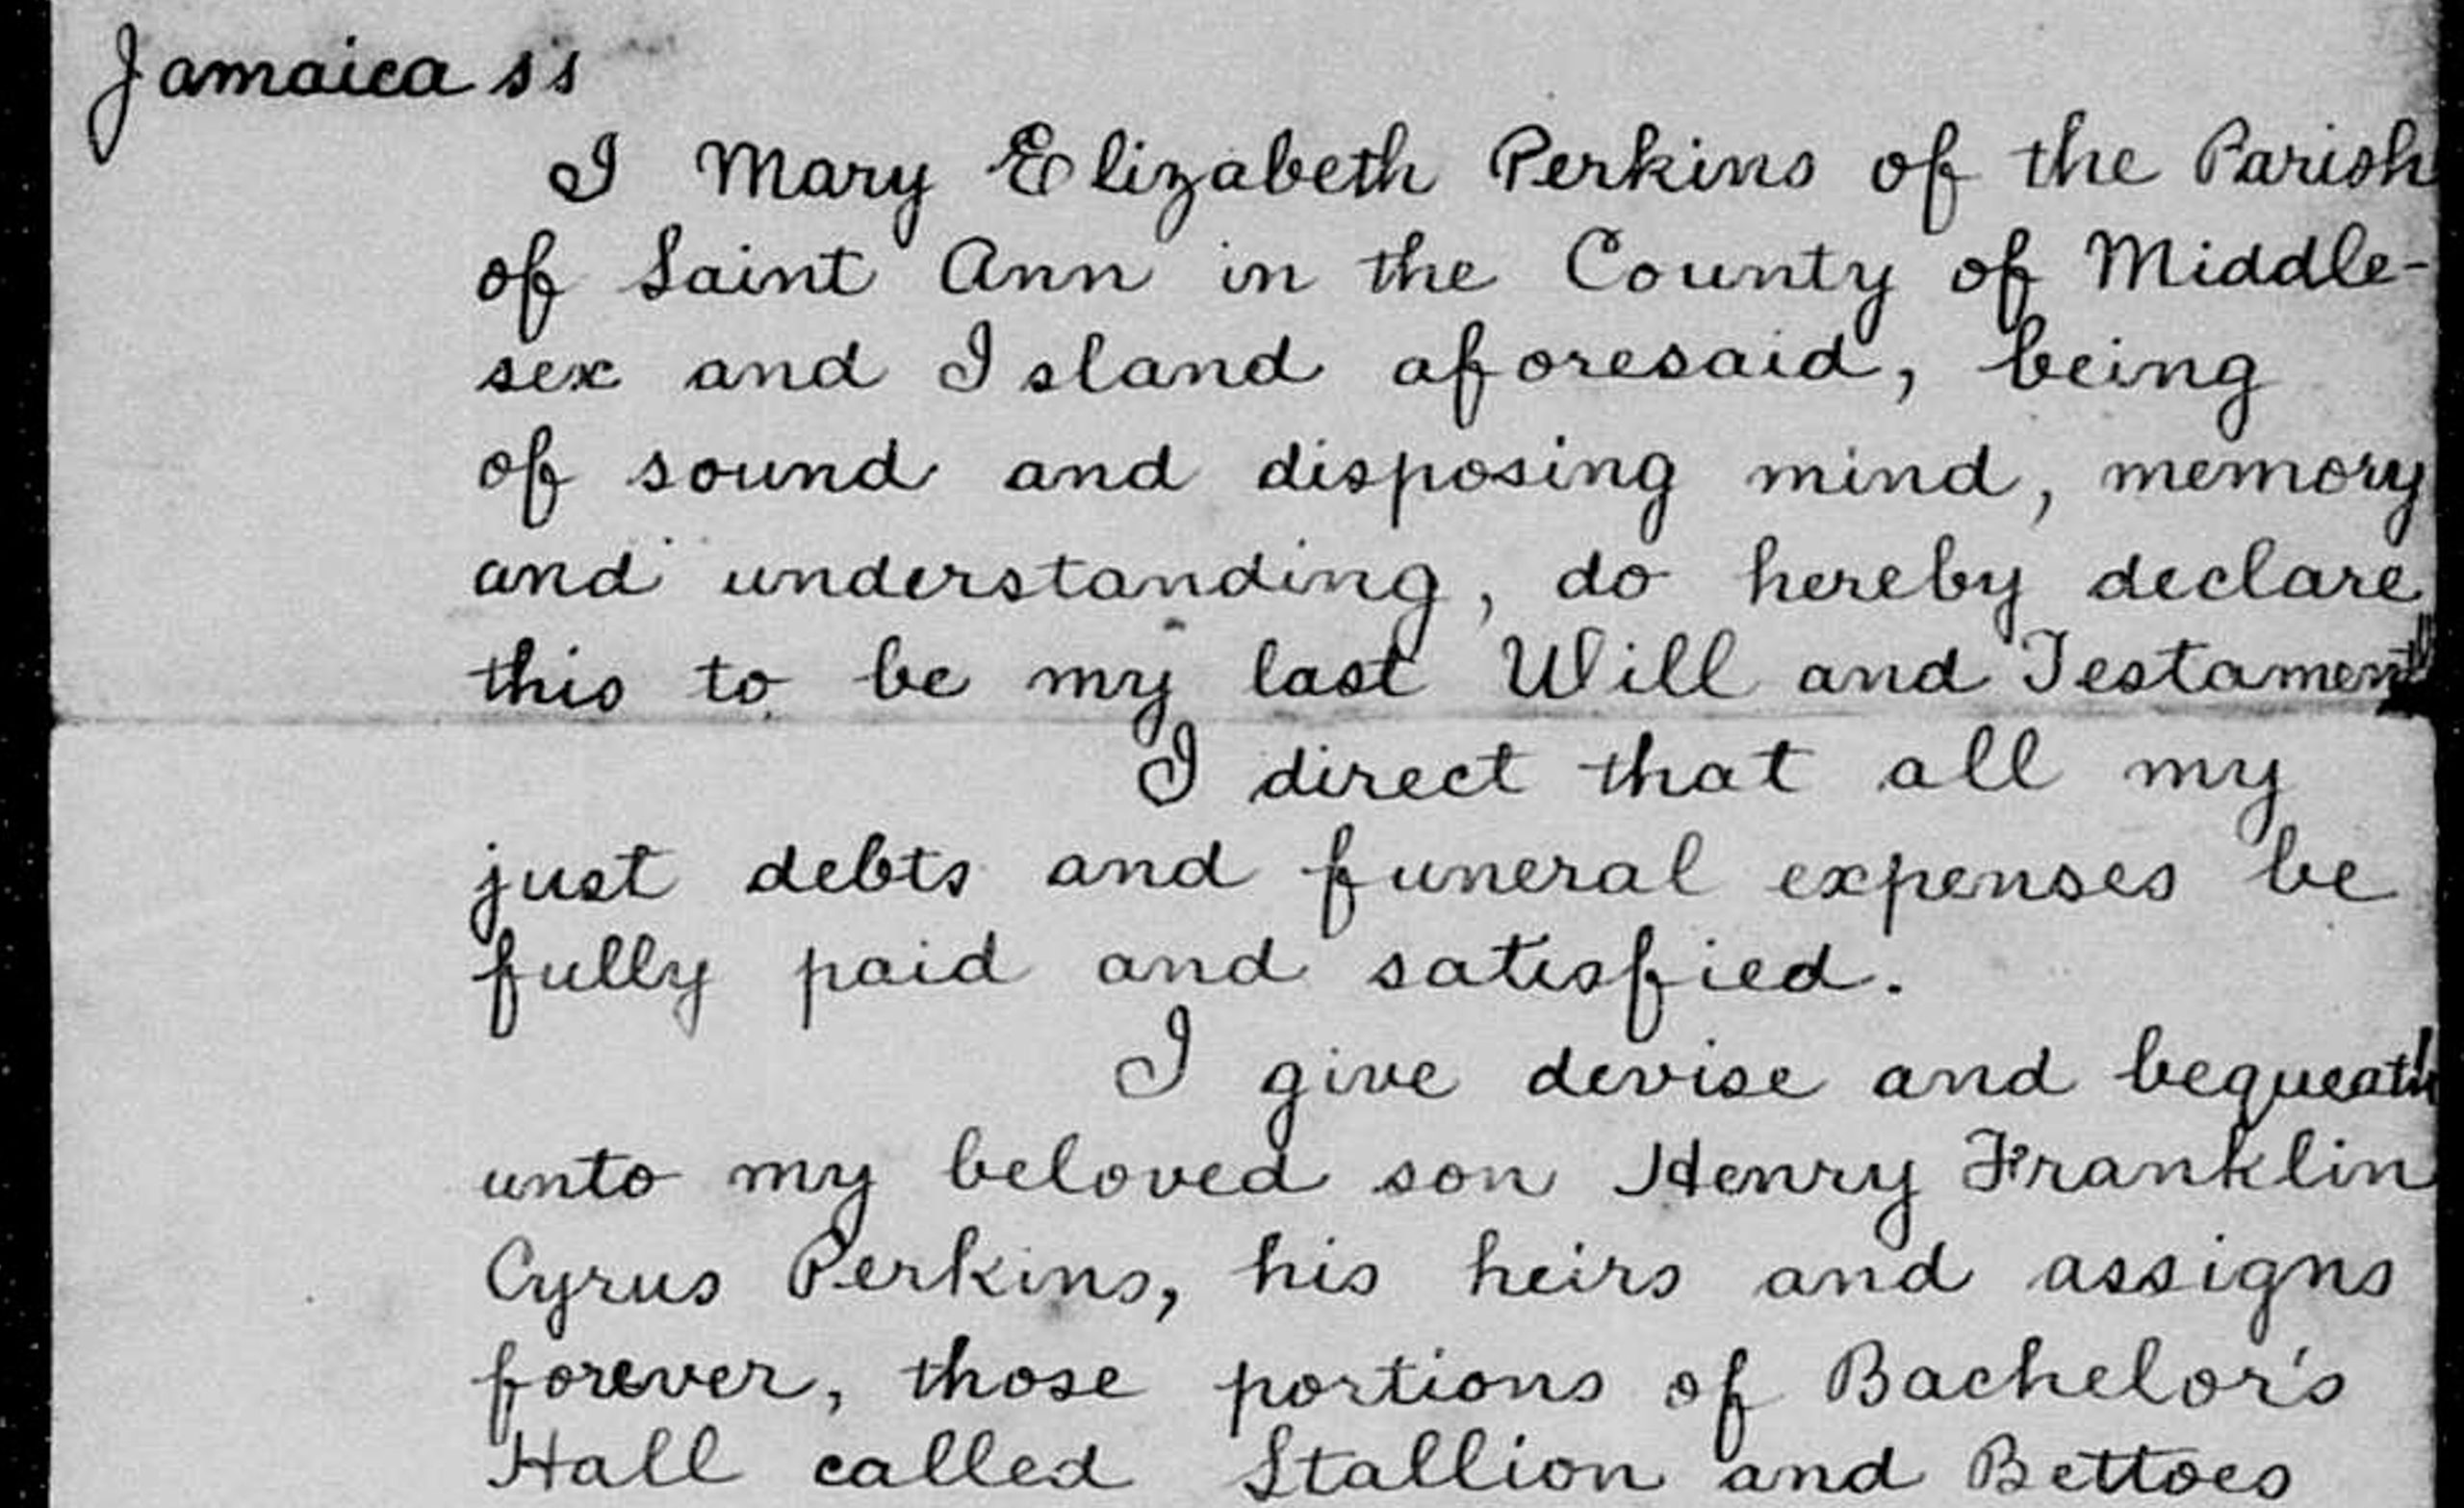 Jamaica ss
I Mary Elizabeth Perkins of the Parish
of Saint Ann in the County of Middle-
sex and Island aforesaid, being
of sound and disposing mind, memory
and understanding, do hereby declare
this to be my last Will and Testament
I direct that all my
just debts and funeral expenses be
fully paid and satisfied.
I give devise and bequeath
unto my beloved son Henry Franklin
Cyrus Perkins, his heirs and assigns
forever, those portions of Bachelor's
Hall called Stallion and Bettoes